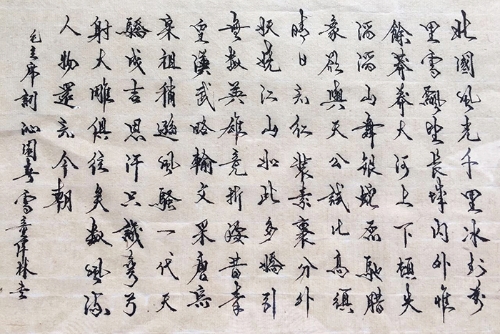 北國風光千里冰封萬
里雪飄望長城內外惟
餘莽莽大河上下頓失
滔滔山舞銀蛇原馳腊
象欲與天公試比高須
晴日看紅裝素裹分外
妖嬈江山如此多嬌引
無數英雄競折腰昔秦
皇漢武略輸文采唐宗
宋祖稍遜風騷一代天
驕成吉思汗只識彎弓
射大雕俱往矣數風流
人物還看今朝
毛主席詞沁園春雪林書